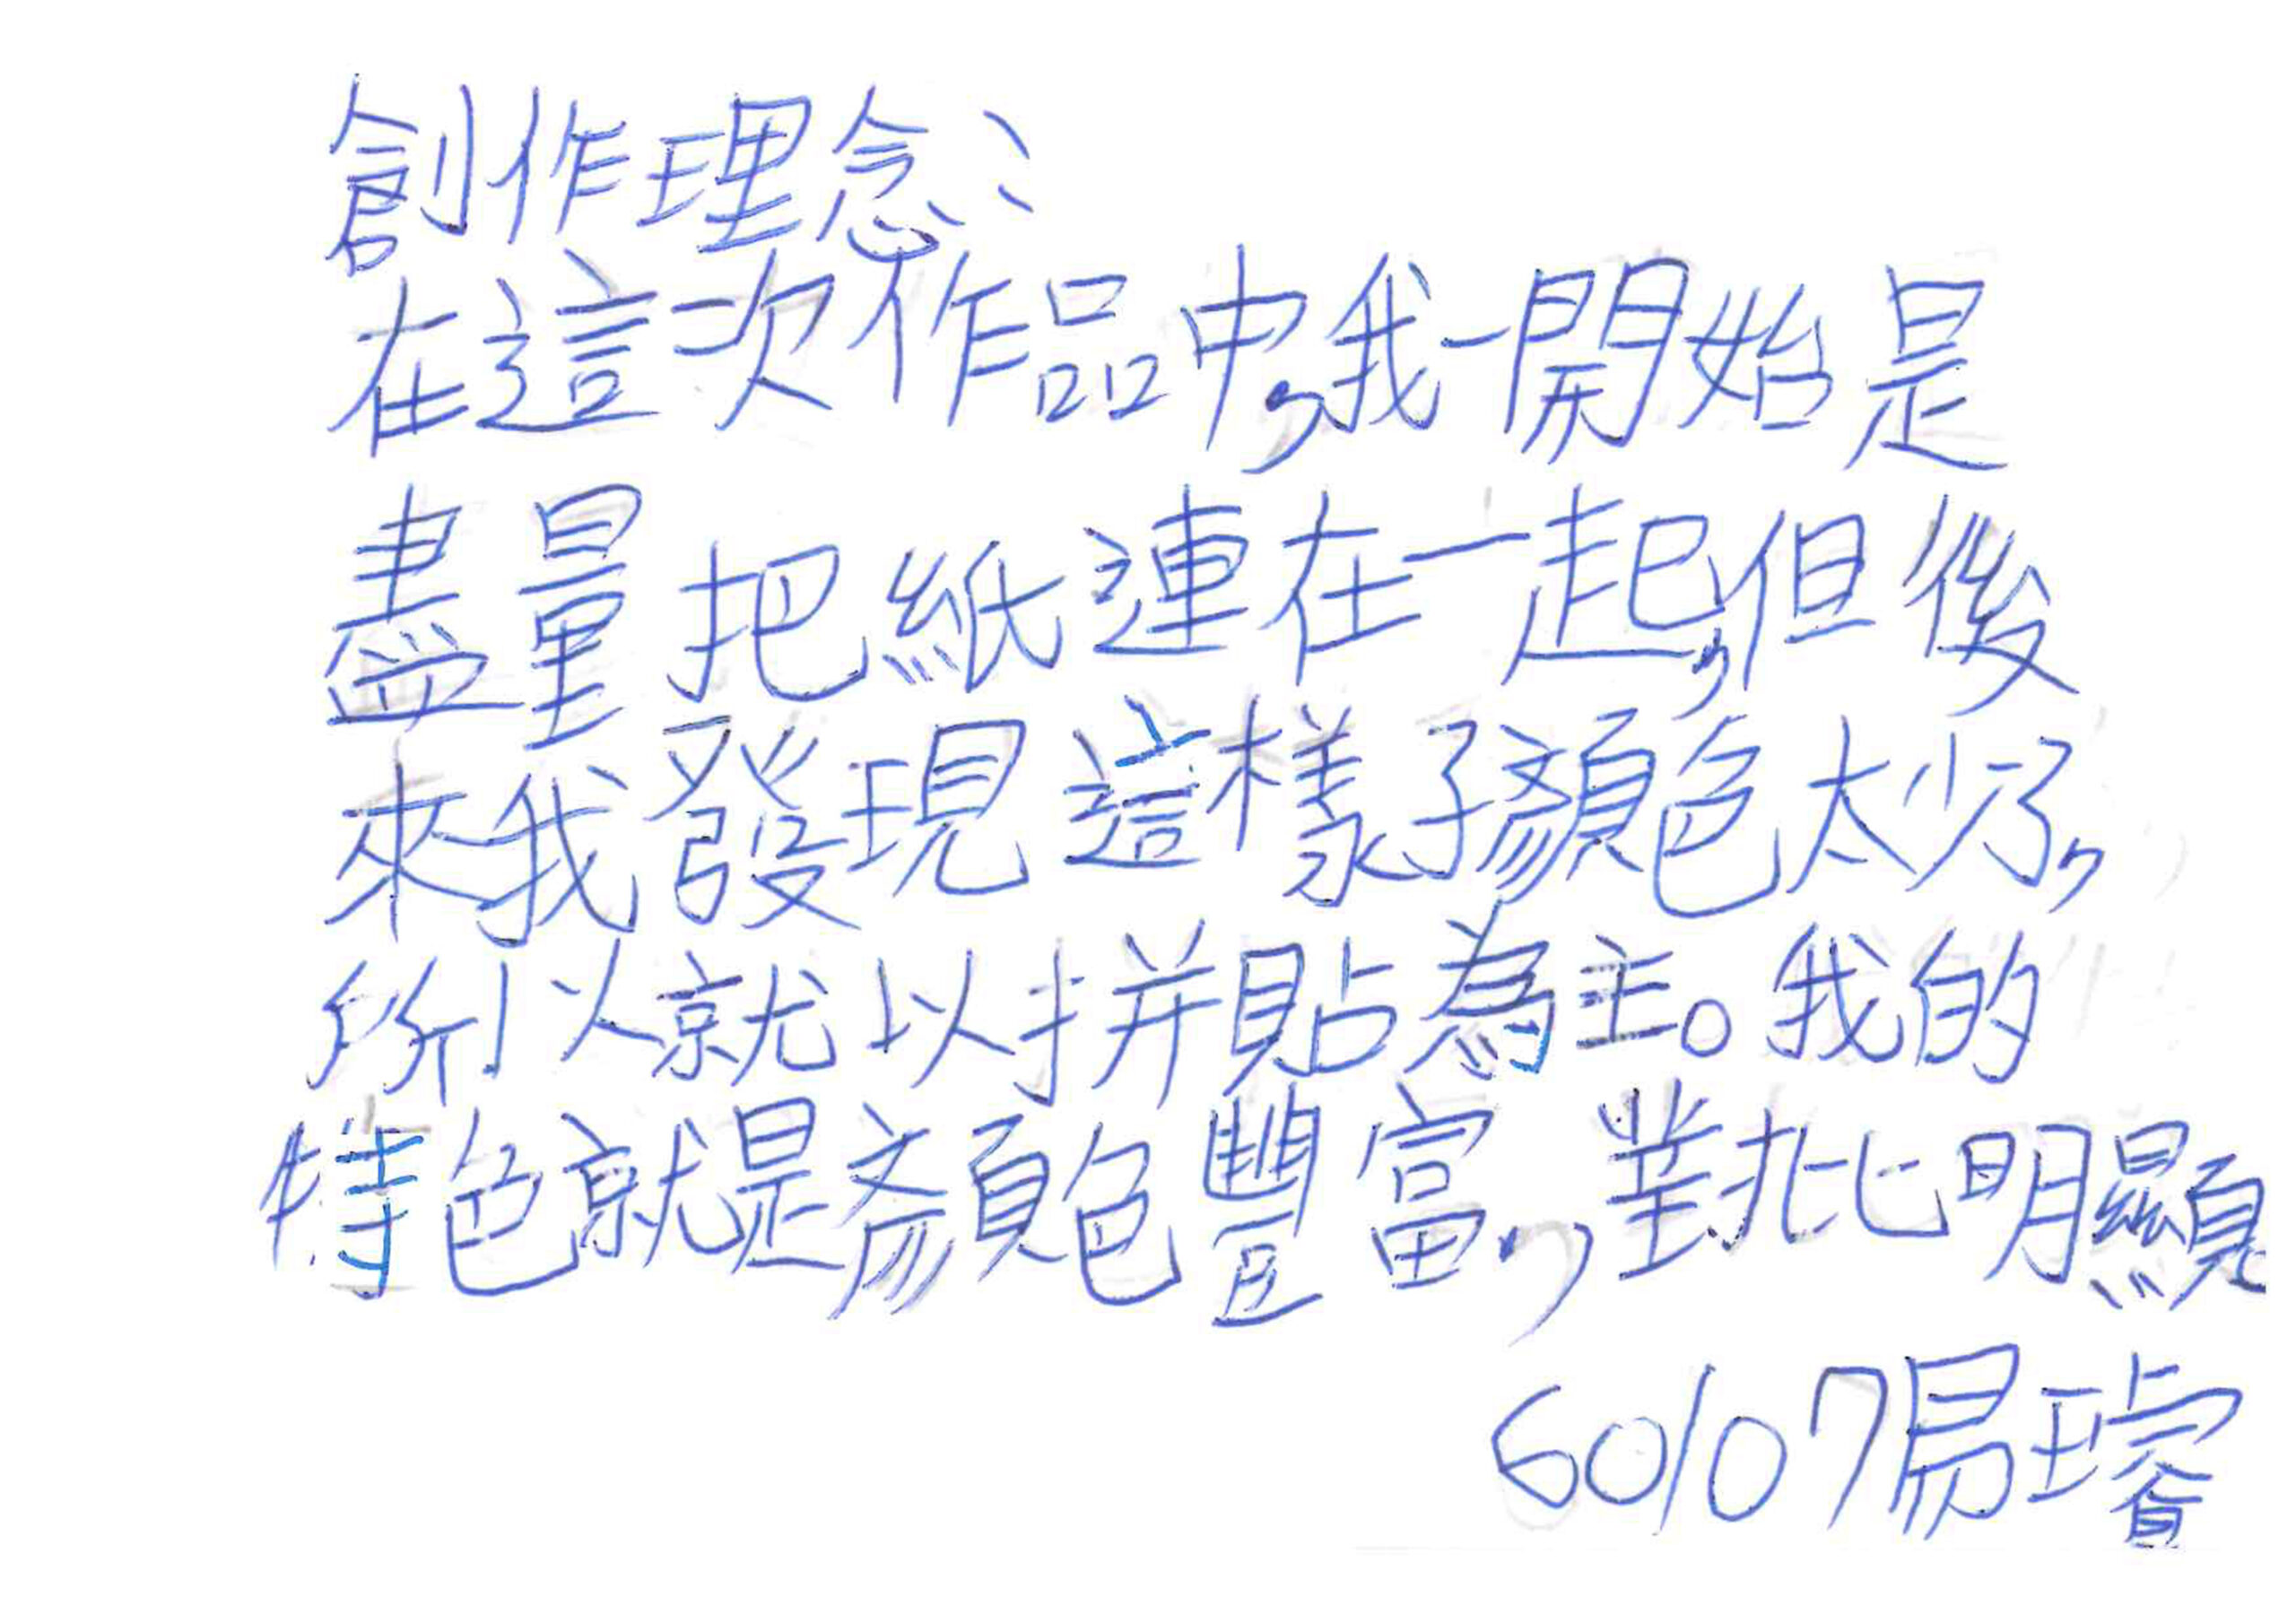 創作理念:
在這次作品中,我一開始是
盡量把紙連在一起,但後
來我發現這樣子顏色太少了,
所以就以拼貼為主。我的
特色就是顏色豐富,對比明顯
60107易璿